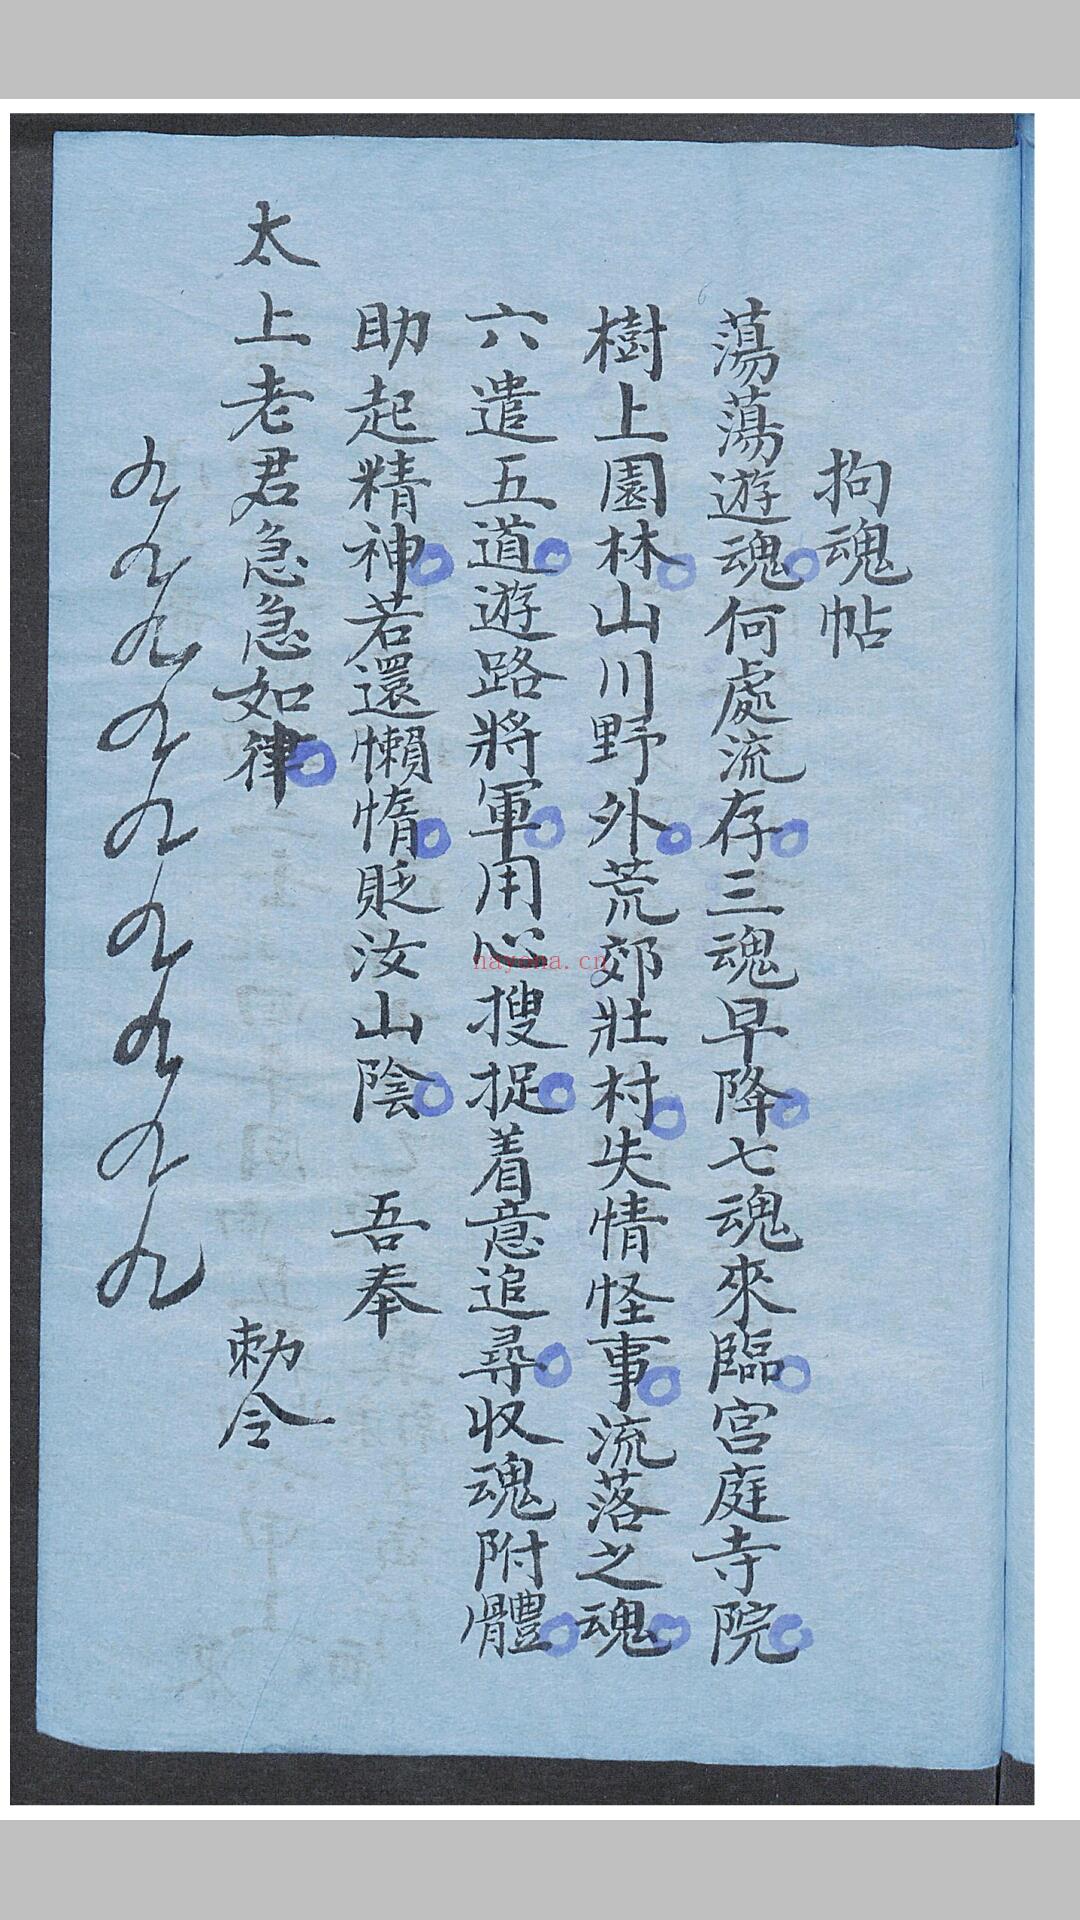 拘魂帖
蕩蕩遊魂何處流存三魂早降七魂來臨宮庭寺院
樹上園林山川野外荒郊壯村失情怪事流落之魂
六遣五道遊路將軍用心搜捉着意追尋収魂附體
助起精神若還懶惰貶汝山陰　吾奉
太上老君急急如律　勅令
九九九九九九九九九
nayona.cn